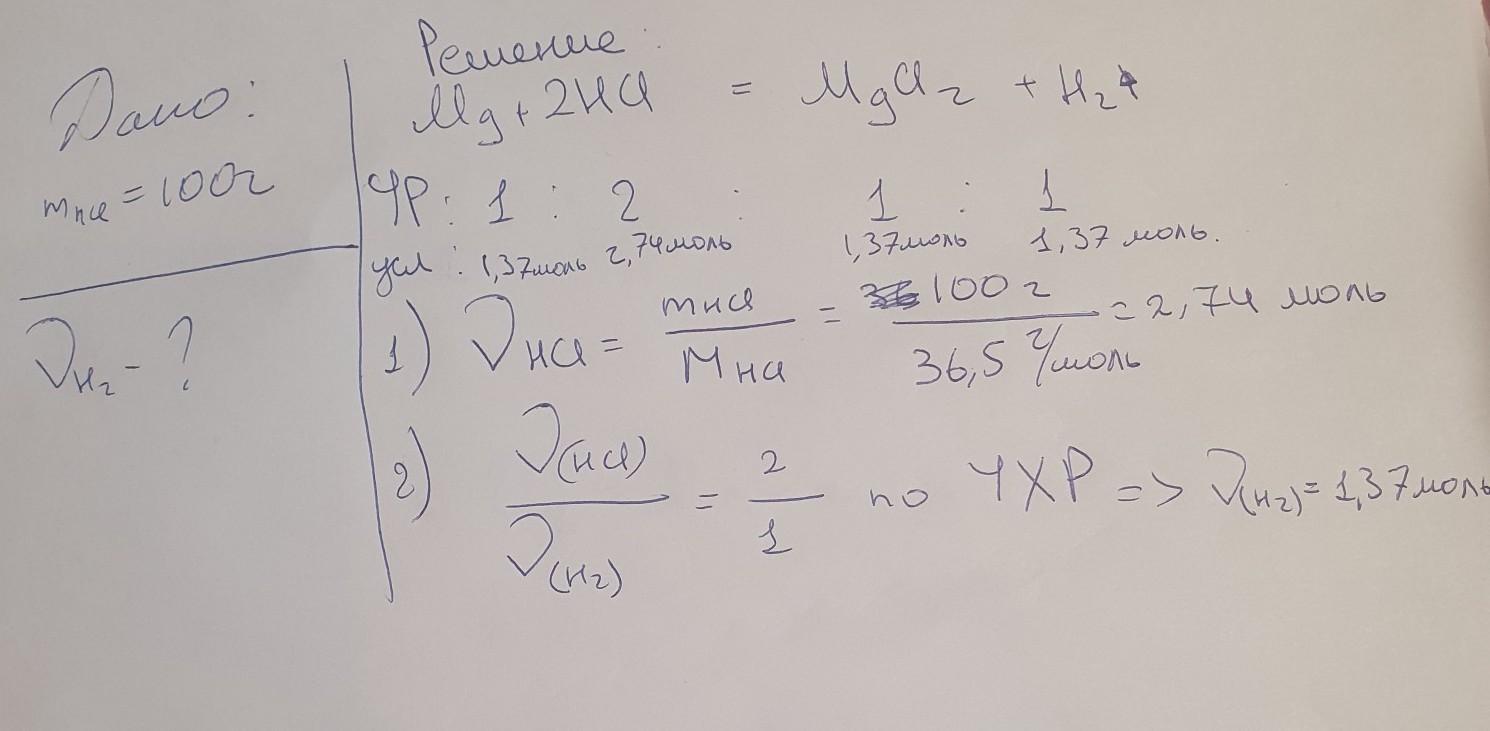 Дано:
m HCl = 100г
ν H₂ - ?
Решение:
Mg + 2HCl = MgCl₂ + H₂↑
УР: 1 : 2 : 1 : 1
усл: 1,37моль 2,74моль 1,37моль 1,37 моль.
1) ν HCl = m HCl / M HCl = 100 г / 36,5 г/моль = 2,74 моль
2) ν(HCl) / ν(H₂) = 2 / 1 по УХР => ν(H₂) = 1,37моль